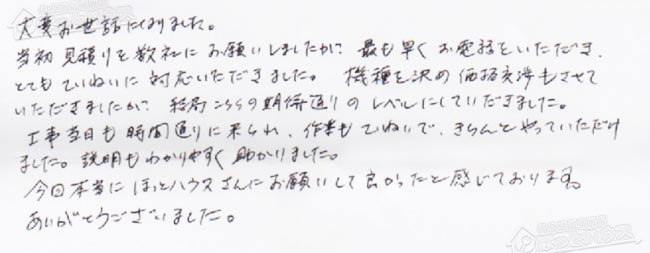 大変お世話になりました。
当初見積りを数社にお願いしましたが、最も早くお電話をいただき、
とてもていねいに対応いただきました。機種を決め価格交渉もさせて
いただきましたが、結局こちらの期待通りのレベルにしていただきました。
工事当日も時間通りに来られ、作業もていねいで、きちんとやっていただけ
ました。説明もわかりやすく助かりました。
今回本当にほっとハウスさんにお願いして良かったと感じております。
ありがとうございました。